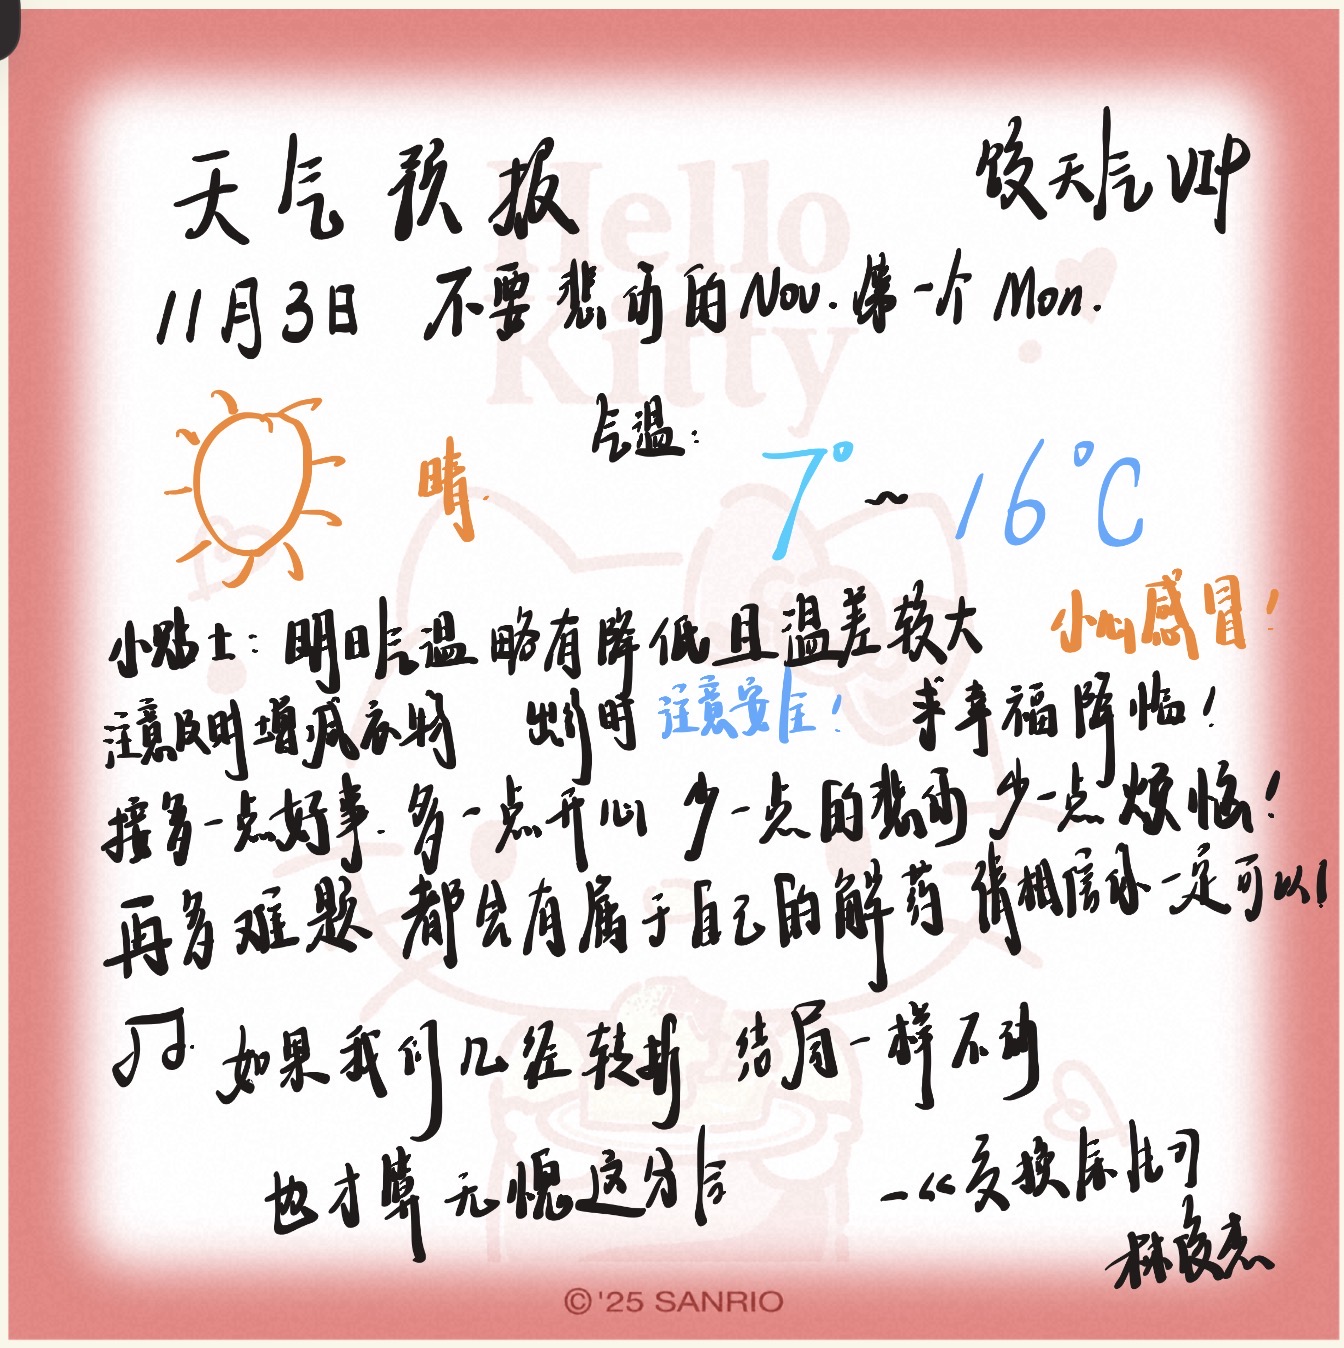 天气预报
饺天气VIP
11月3日 不要悲伤的Nov.第一个Mon.
Hello
Kitty
气温:
晴.
7°~16°C
小贴士:明日气温略有降低且温差较大 小心感冒!
注意及时增减衣物 出行时注意安全! 求幸福降临!
接多一点好事.多一点开心 少一点的悲伤 少一点烦恼!
再多难题 都会有属于自己的解药 请相信你一定可以!
如果我们几经转折 结局一样不动
也才算无愧这分合
—《交换余生》
林俊杰
©'25 SANRIO